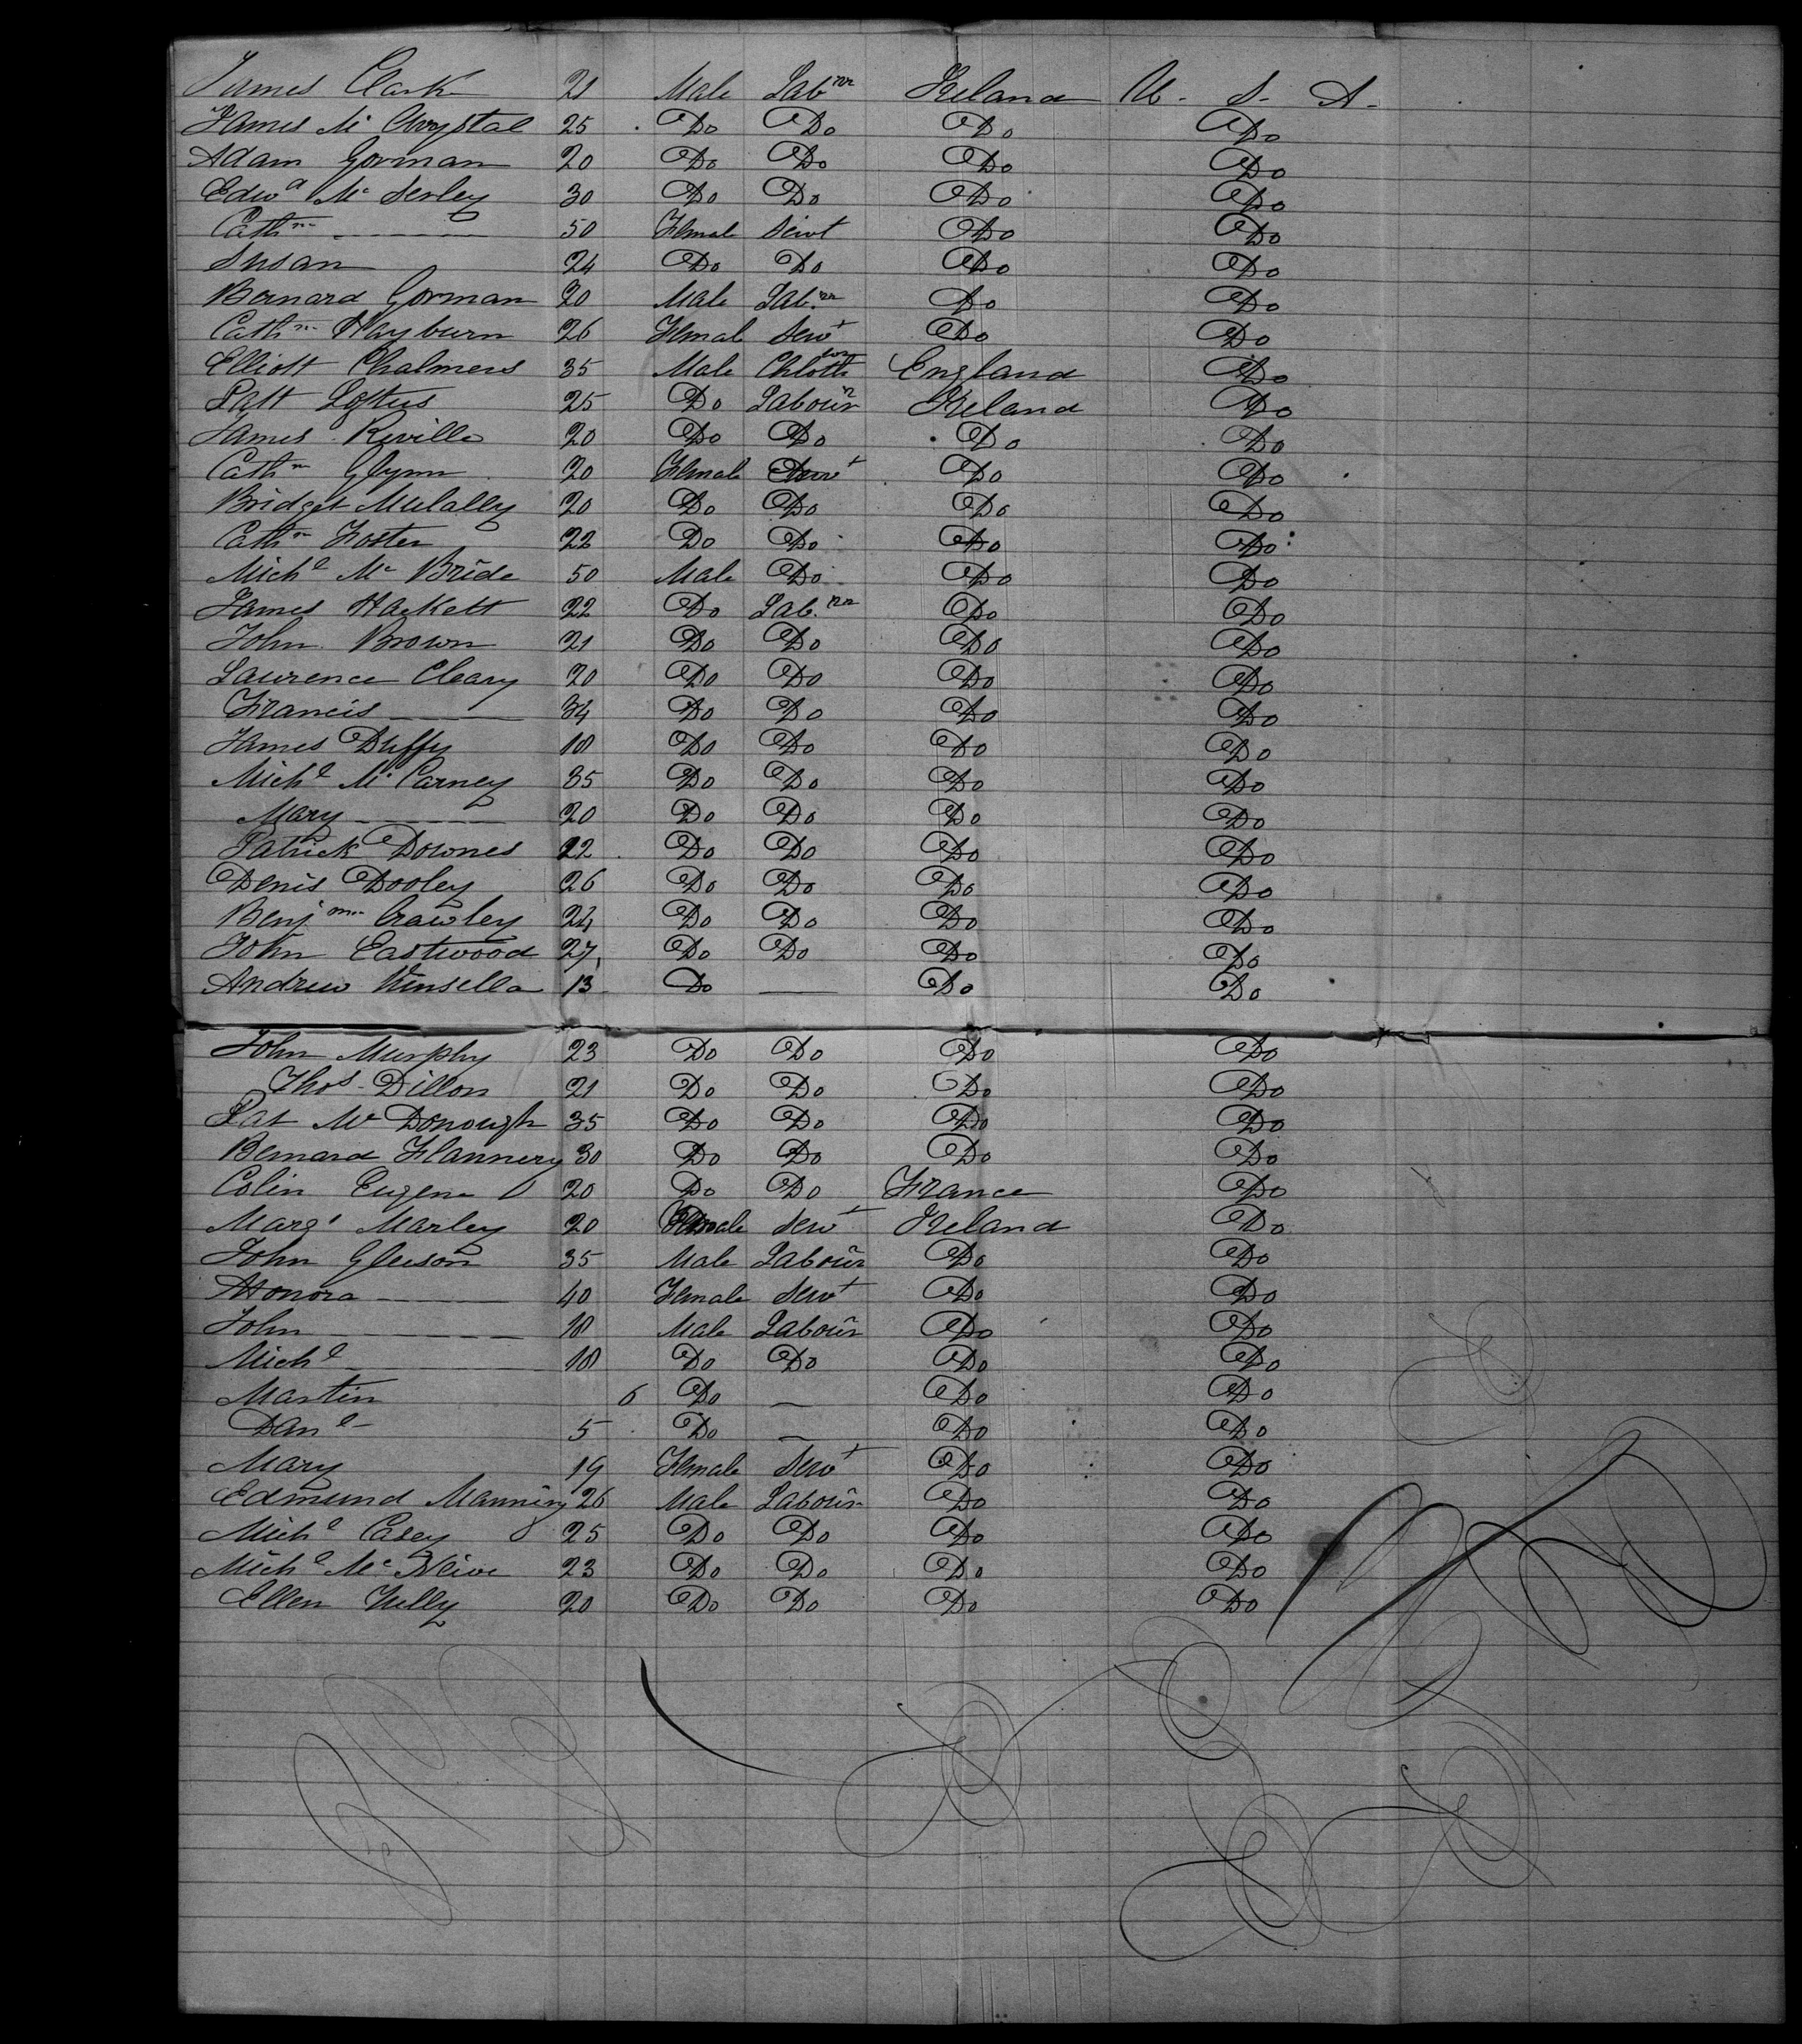 James Clark 21 Male Labrr Ireland U. S. A.
James Mc Chrystal 25 Do Do Do Do
Adam Gorman 20 Do Do Do Do
Edwd Mc Serley 30 Do Do Do Do
Cathn 50 Female Servt Do Do
Susan 24 Do Do Do Do
Bernard Gorman 20 Male Labrr Do Do
Cathn Rayburn 26 Female Servt Do Do
Elliott Chalmers 35 Male England Do
Patt Loftus 25 Do Labourr Ireland Do
James Reville 20 Do Do Do Do
Cathn Glynn 20 Female Servt Do Do
Bridget Mulally 20 Do Do Do Do
Cathn Foster 22 Do Do Do Do
Michl Mc Bride 50 Male Do Do Do
James Hackett 22 Do Labrr Do Do
John Brown 21 Do Do Do Do
Laurence Cleary 20 Do Do Do Do
Francis 34 Do Do Do Do
James Duffy 18 Do Do Do Do
Michl Mc Carney 35 Do Do Do Do
Mary 20 Do Do Do Do
Patrick Downes 22 Do Do Do Do
Denis Dooley 26 Do Do Do Do
Benjmn Crawley 24 Do Do Do Do
John Eastwood 27 Do Do Do Do
Andrew Kinsella 13 Do — Do Do
John Murphy 23 Do Do Do Do
Thos Dillon 21 Do Do Do Do
Pat Mc Donough 35 Do Do Do Do
Bernard Flannery 30 Do Do Do Do
Colin Eugene 20 Do Do France Do
Margt Marley 20 Female Servt Ireland Do
John Gleeson 35 Male Labour Do Do
Honora 40 Female Servt Do Do
John 18 Male Labour Do Do
Michl 18 Do Do Do Do
Martin 6 Do — Do Do
Danl 5 Do — Do Do
Mary 19 Female Servt Do Do
Edmund Manning 26 Male Labour Do Do
Michl Casey 25 Do Do Do Do
Michl Mc Neive 23 Do Do Do Do
Ellen Tully 20 Do Do Do Do